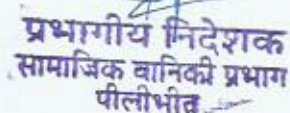 प्रभागीय निदेशक
सामाजिक वानिकी प्रभाग
पीलीभीत